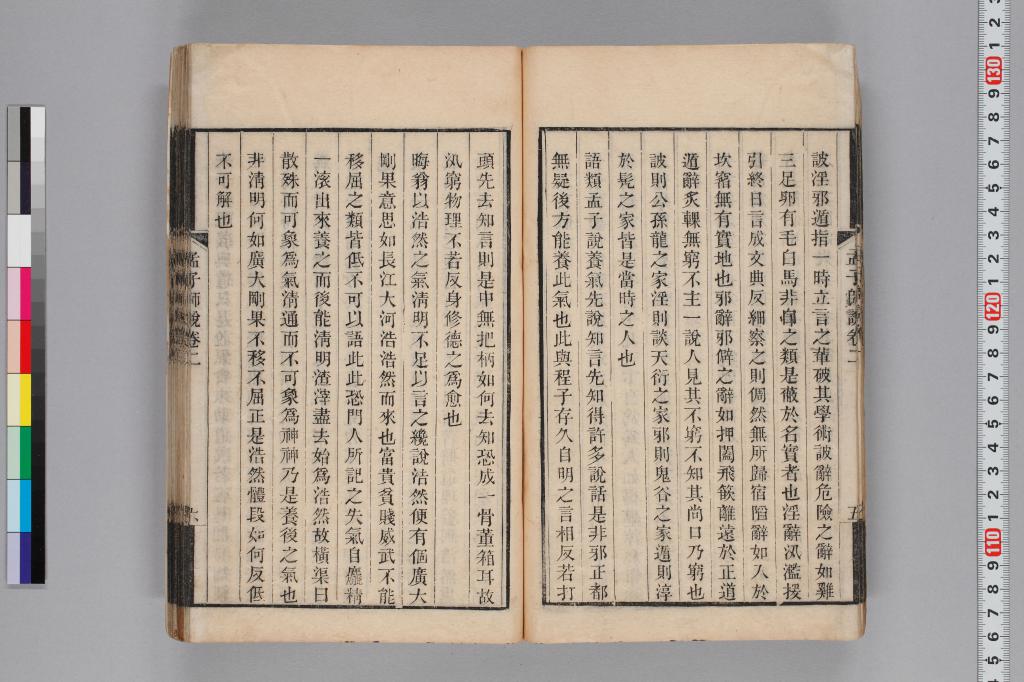 詖淫邪遁指一時立言之輩破其學術詖辭危險之辭如雞
三足卵有毛白馬非馬之類是蔽於名實者也淫辭汎濫援
引終日言成文典反紃察之則倜然無所歸宿陷辭如入於
坎窞無有實地也邪辭邪僻之辭如押闔飛箝離遠於正道
遁辭炙輠無窮不主一說人見其不窮不知其尚口乃窮也
詖則公孫龍之家淫則談天衍之家邪則鬼谷之家遁則淳
於髡之家皆是當時之人也
語類孟子說養氣先說知言先知得許多說話是非邪正都
無疑後方能養此氣也此與程子存久自明之言相反若打
頭先去知言則是中無把柄如何去知恐成一骨董箱耳故
汎窮物理不若反身修德之為愈也
晦翁以浩然之氣清明不足以言之纔說浩然便有個廣大
剛果意思如長江大河浩浩然而來也富貴貧賤威武不能
移屈之類皆低不可以語此此恐門人所記之失氣自麤精
一滚出來養之而後能清明渣滓盡去始爲浩然故橫渠曰
散殊而可象爲氣清通而不可象爲神神乃是養後之氣也
非清明何如廣大剛果不移不屈正是浩然體段如何反低
不可解也
孟子師說卷二
五
孟子師說卷二
六
130
120
110